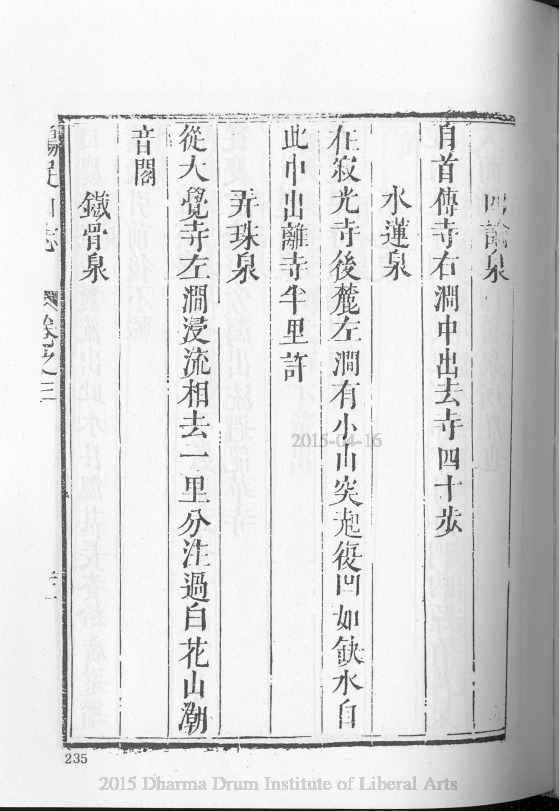 泉
自首傳寺右澗中出去寺四十步
水蓮泉
在寂光寺後麓左澗有小山突起復凹如缺水自
此中出離寺半里許
弄珠泉
從大覺寺左澗浸流相去一里分注過白花山潮
音閣
鐵骨泉
山志 卷之三
235
2015-04-16
2015 Dharma Drum Institute of Liberal Arts